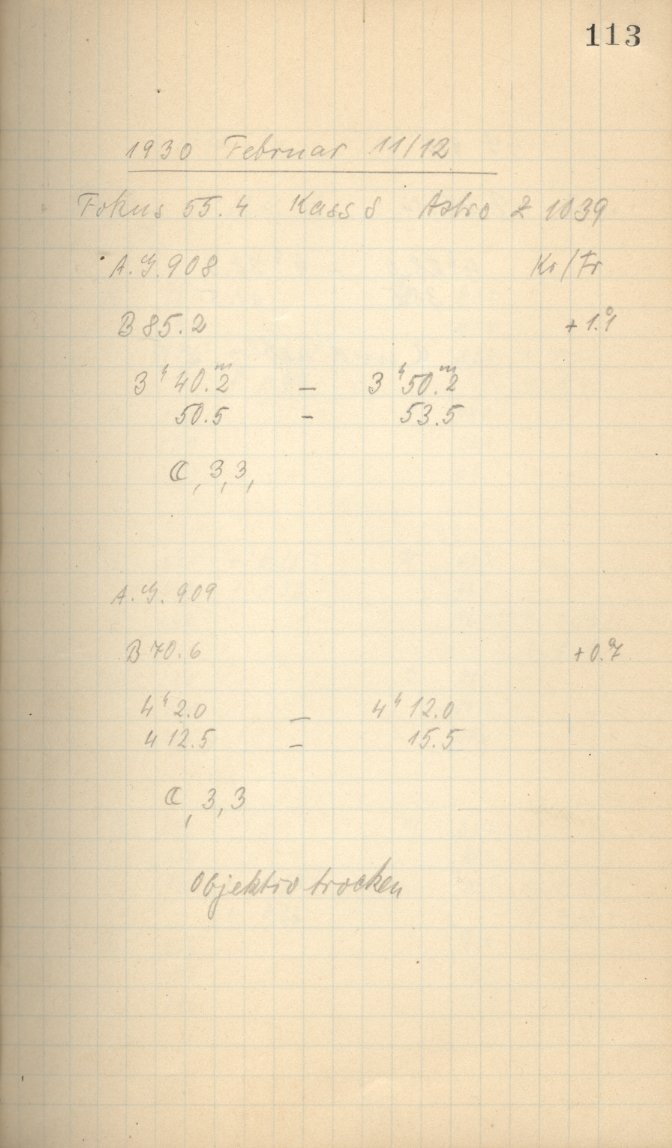 113
1930 Februar 11/12
Fokus 55.4 Kass 8 Astro Z 1039
A.G. 908 Kr/Fr
B 85.2 + 1.°1
3ʰ 40.ᵐ2 – 3ʰ 50.ᵐ2
50.5 – 53.5
ℂ, 3, 3,
A.G. 909
B 70.6 + 0.°7
4ʰ 2.0 – 4ʰ 12.0
4 12.5 – 15.5
ℂ, 3, 3
Objektiv trocken